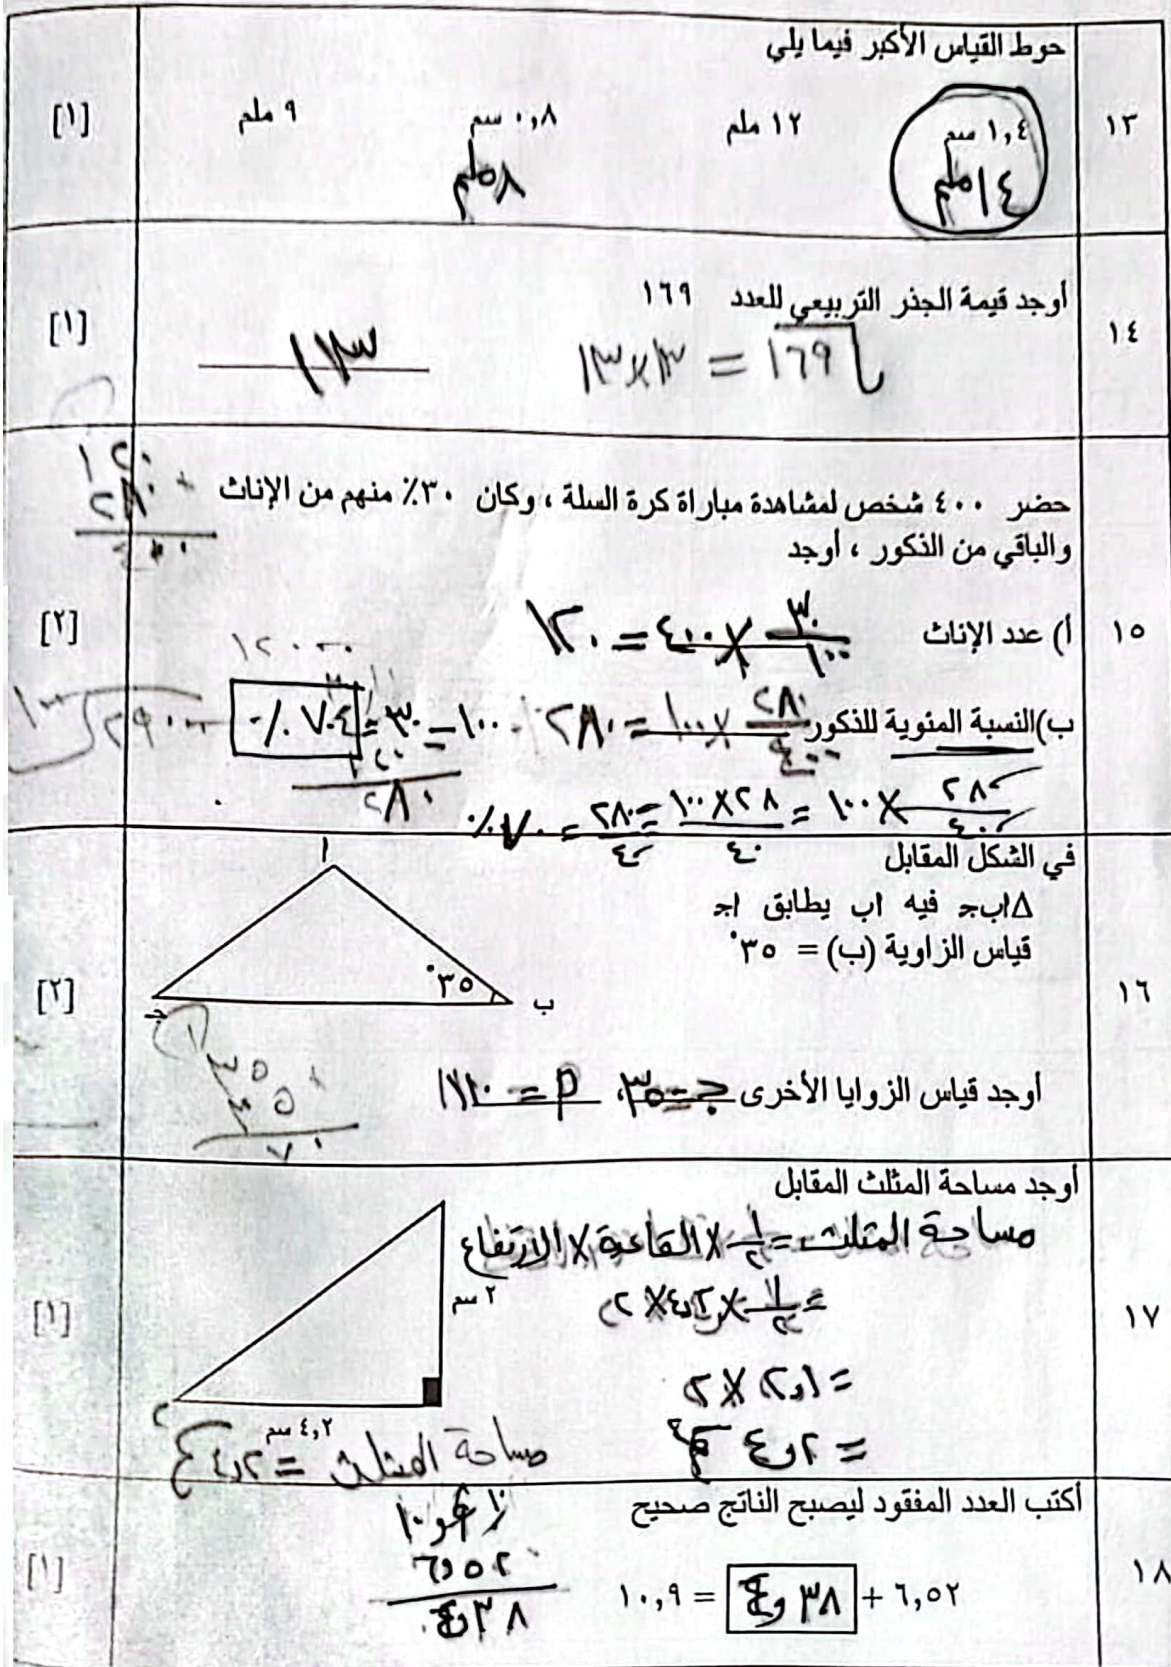 حوط القياس الأكبر فيما يلي
١٣
١,٤ سم ١٢ ملم ٠,٨ سم ٩ ملم [١]
١٤ ملم ٨ ملم
أوجد قيمة الجذر التربيعي للعدد ١٦٩
١٤ [١]
√١٦٩ = ١٣×١٣ ١٣
حضر ٤٠٠ شخص لمشاهدة مباراة كرة السلة ، وكان ٣٠٪ منهم من الإناث
والباقي من الذكور ، أوجد
١٢٠
٢٨٠ +
٤٠٠
١٥ أ) عدد الإناث ٣٠/١٠٠ × ٤٠٠ = ١٢٠ [٢]
ب)النسبة المئوية للذكور ٢٨٠/٤٠٠ × ١٠٠ = ٢٨٠ ١٠٠ - ٣٠ = ٧٠٪
٢٨٠
٢٨٠/٤٠٠ × ١٠٠ = ١٠٠×٢٨/٤٠ = ٢٨٠/٤٠ = ٧٠٪
في الشكل المقابل
Δابجـ فيه اب يطابق اجـ
قياس الزاوية (ب) = ٣٥°
١٦ [٢]
ا
٣٥°
ب
جـ
أوجد قياس الزوايا الأخرى جـ = ٣٥، م = ١١٠
٣٥
٣٥ +
٧٠
أوجد مساحة المثلث المقابل
مساحة المثلث = ١/٢ × القاعدة × الارتفاع
١٧ [١]
٢ سم
= ١/٢ × ٤,٢ × ٢
= ٢,١ × ٢
٤,٢ سم
= ٤,٢ سم٢
مساحة المثلث = ٤,٢ سم٢
أكتب العدد المفقود ليصبح الناتج صحيح
١٨ [١]
٦,٥٢ + ٤,٣٨ = ١٠,٩
١٠,٩
٦,٥٢
٤,٣٨